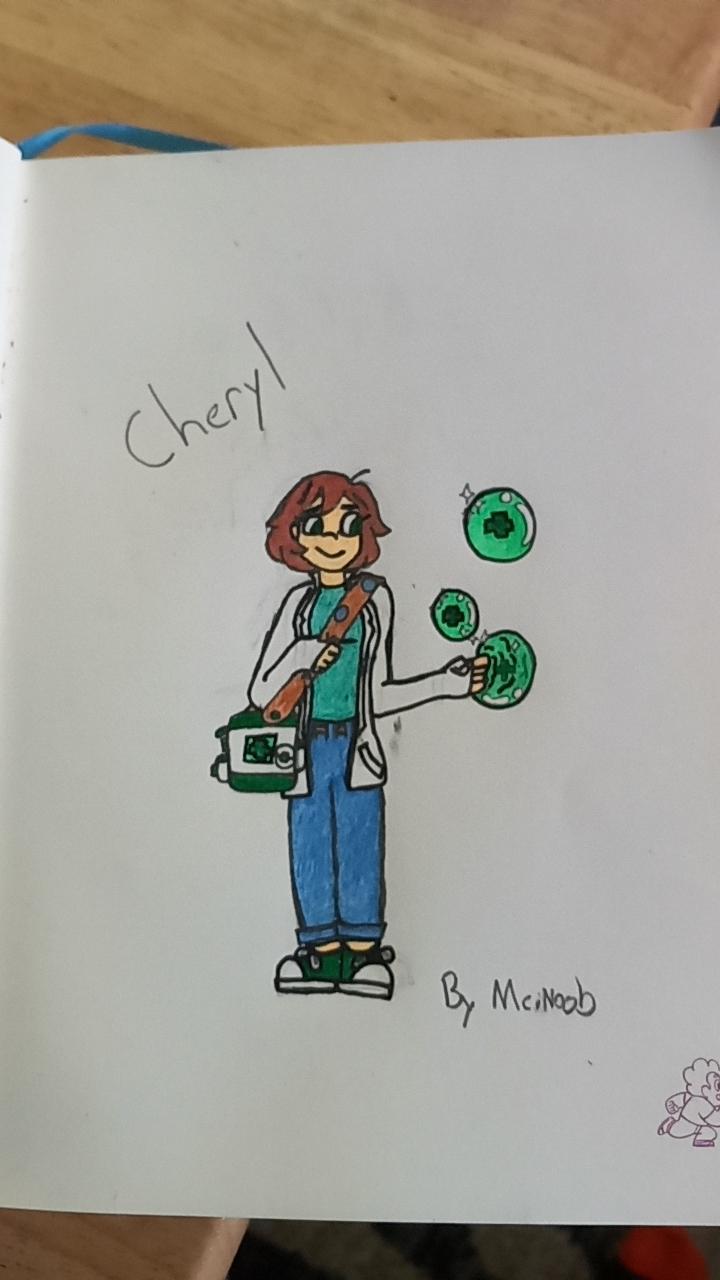 Cheryl
By McNoob